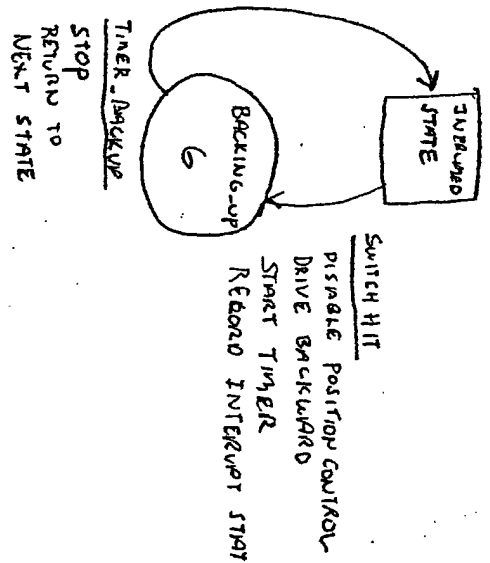 INTERUPTED
STATE
SWITCH HIT
DISABLE POSITION CONTROL
DRIVE BACKWARD
START TIMER
RECORD INTERUPT STAT
BACKING-UP
6
TIMER_BACKUP
STOP
RETURN TO
NEXT STATE